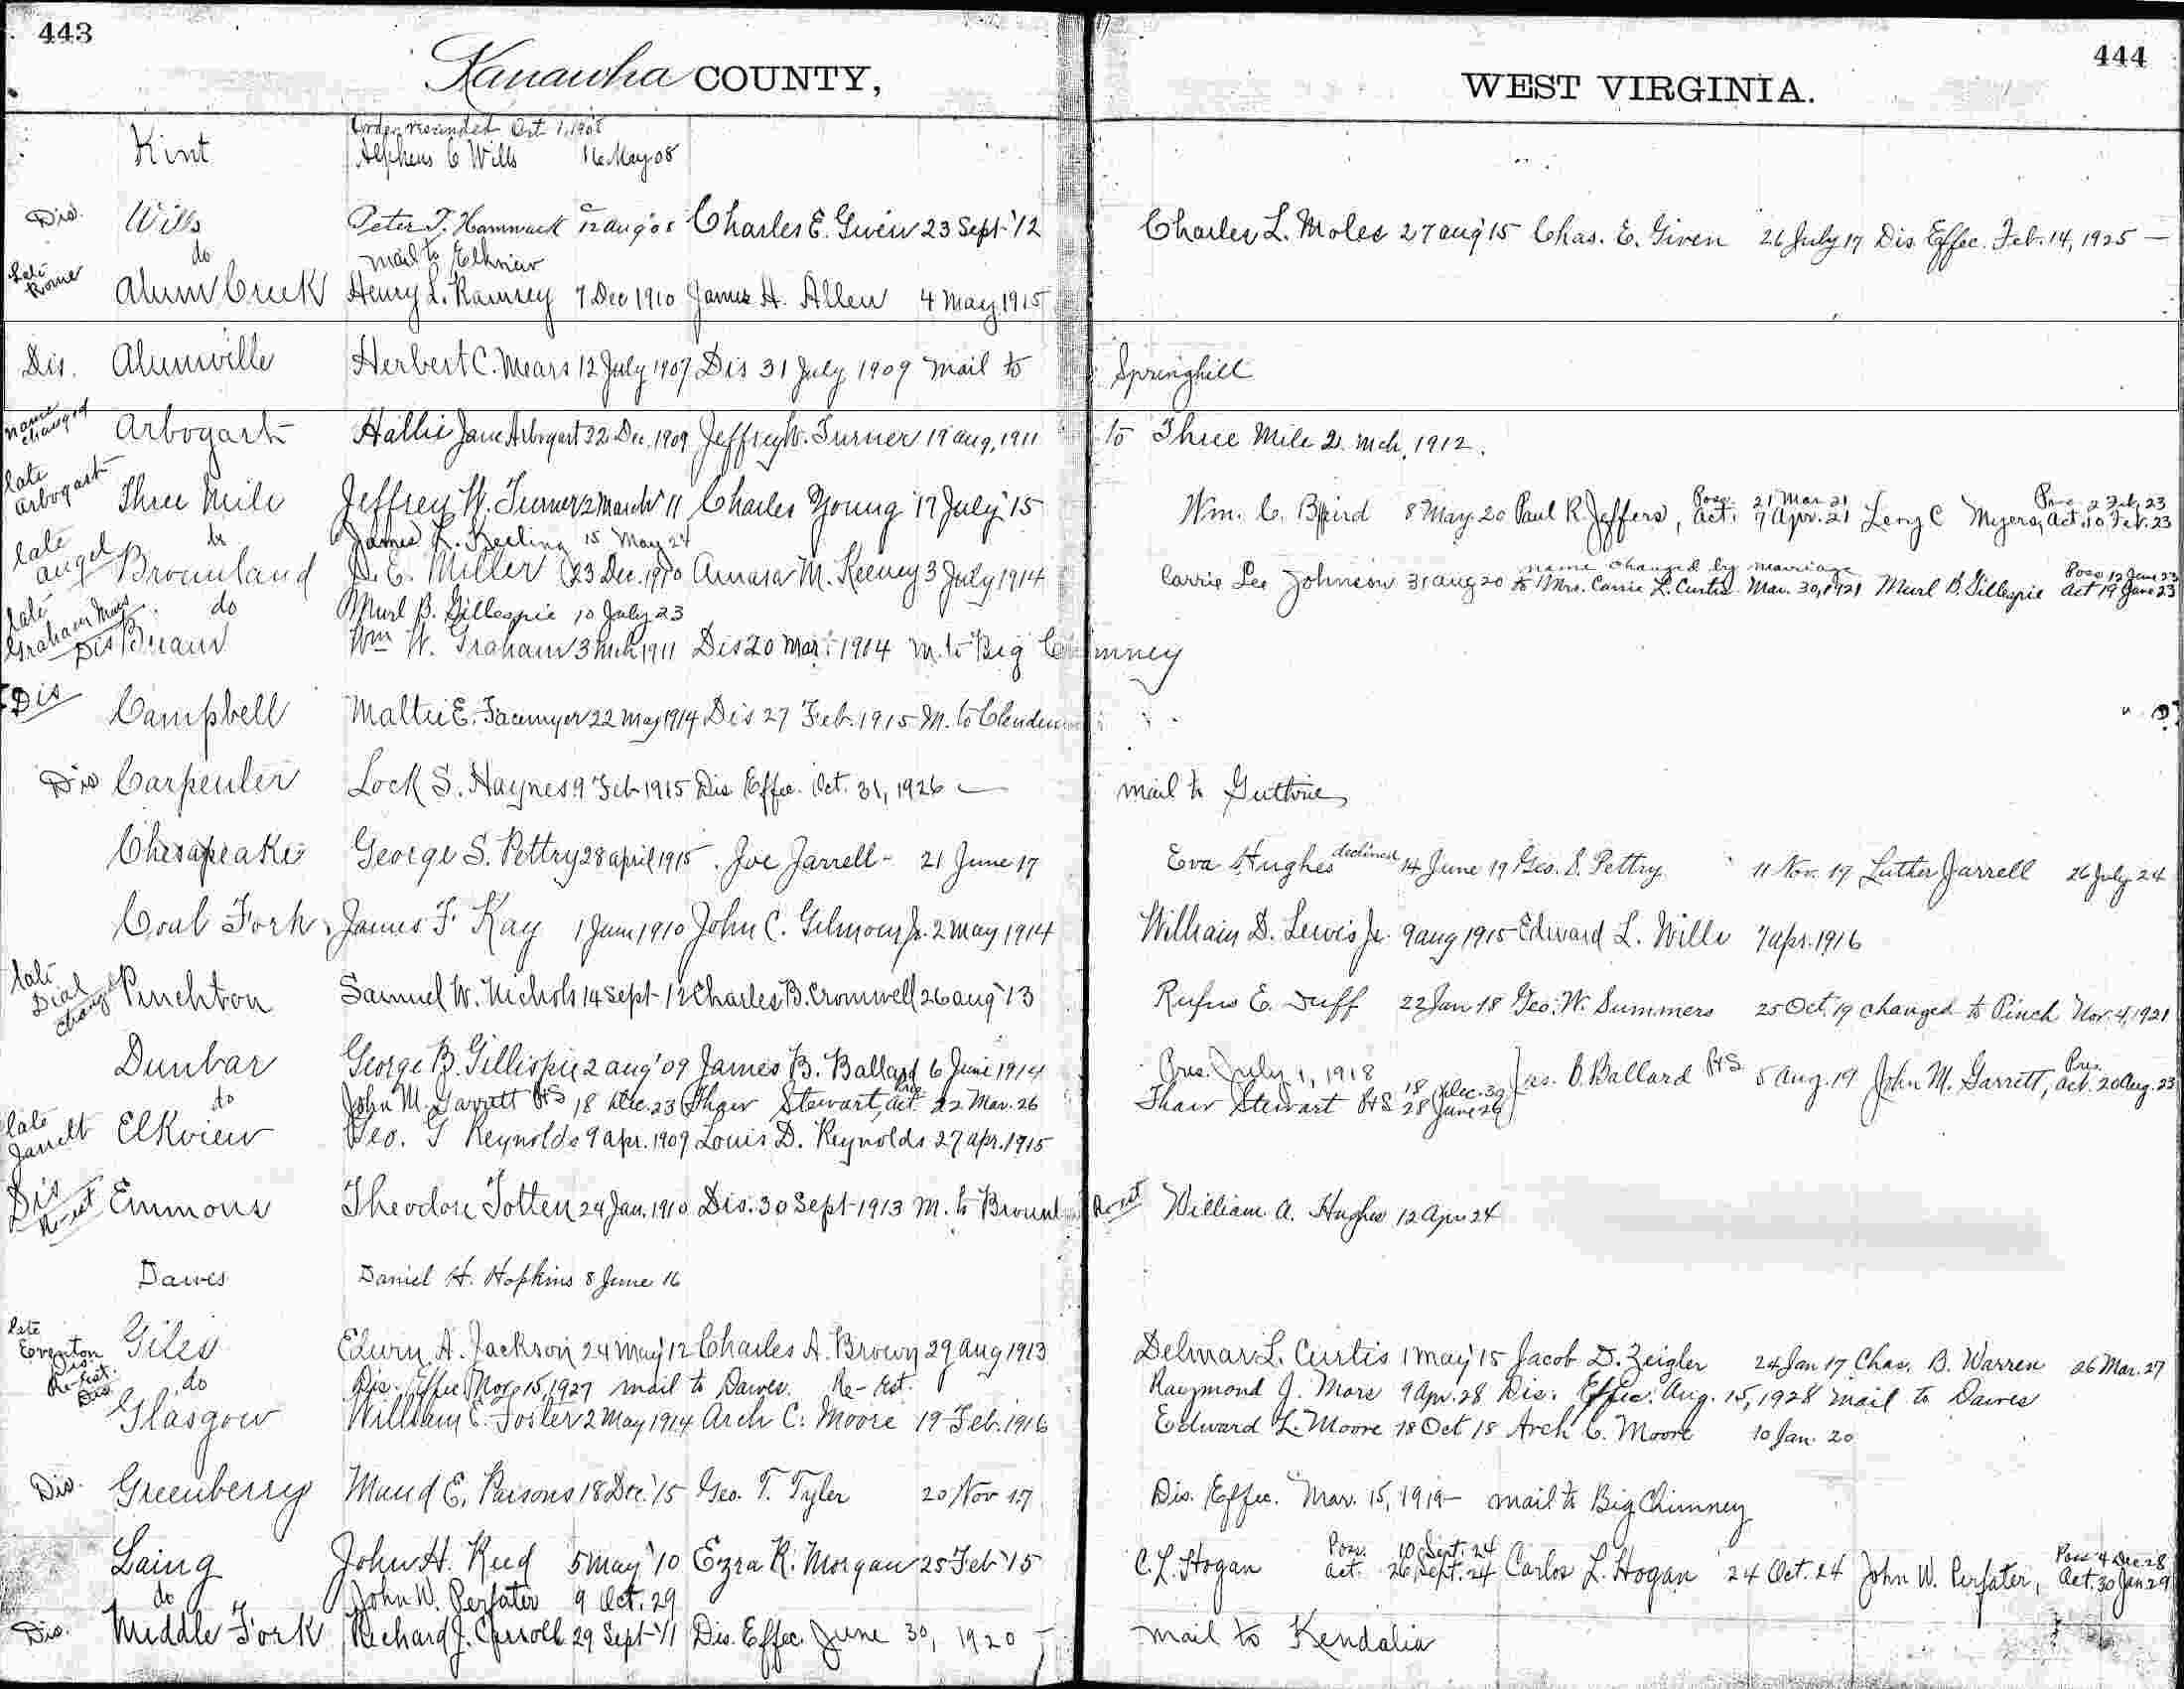 443
Kanawha COUNTY,
444
WEST VIRGINIA.
Order rescinded Oct 1, 1908
Kint Alpheus C Wills 16 May 08
Dis. Wills Peter T. Hammack 12 Aug '08 Charles E. Given 23 Sept '12 Charles L. Moles 27 Aug 15 Chas. E. Given 26 July 17 Dis. Effec. Feb. 14, 1925 —
do mail to Elkview
late Rome Alum Creek Henry L. Ramsey 7 Dec 1910 James H. Allen 4 May 1915
Dis. Alumville Herbert C. Mears 12 July 1907 Dis 31 July 1909 mail to Springhill
name changed Arbogast Hallie Jane Arbogast 22 Dec. 1909 Jeffrey W. Turner 19 Aug, 1911 to Three Mile 2. Mch. 1912.
late Arbogast Three Mile Jeffrey W. Turner 2 March '11 Charles Young 17 July '15 Wm. C. Baird 8 May 20 Paul R. Jeffers, Poss. 21 Mar 21 Act. 7 Apr. 21 Leroy C Myers, Poss. 2 Feb. 23 Act. 10 Feb. 23
do James L. Keeling 15 May 24
late Angel Brounland D. E. Miller 23 Dec. 1910 Amasa M. Keeney 3 July 1914 Carrie Lee Johnson 31 Aug 20 name changed by marriage to Mrs. Carrie L. Curtis Mar. 30, 1921 Murl B. Gillespie Poss 12 June 23 Act 19 June 23
do Murl B. Gillespie 10 July 23
late Graham Mines Dis Wm W. Graham 3 Mch 1911 Dis 20 Mar. 1914 m. to Big Chimney
Dis Campbell Mattie E. 22 May 1914 Dis 27 Feb. 1915 M. to Clendenin
Dis Carpenter Lock S. Haynes 9 Feb 1915 Dis Effec. Oct. 31, 1926 — mail to Guthrie
Chesapeake George S. Pettry 28 April 1915 Joe Jarrell - 21 June 17 Eva Hughes declined 14 June 19 Geo. S. Pettry 11 Nov. 19 Luther Jarrell 26 July 24
Coal Fork James F Kay 1 June 1910 John C. Gilmour Jr. 2 May 1914 William D. Lewis Jr. 9 Aug 1915 Edward L. Wills 7 Apr. 1916
late Dial changed Pinchton Samuel W. Nichols 14 Sept 12 Charles B. Cromwell 26 Aug '13 Rufus E. Duff 22 Jan 18 Geo. W. Summers 25 Oct. 19 changed to Pinch Nov. 4, 1921
Dunbar George B. Gillispie 2 Aug '09 James B. Ballard 6 June 1914 Pres. July 1, 1918 Jas. B. Ballard P&S 5 Aug. 19 John M. Garrett, act. 20 Aug. 23
do John M. Garrett P&S 18 Dec. 23 Thaw Stewart, act. 22 Mar. 26 Thaw Stewart P&S 18 Dec. 30 28 June 26
late Jarrett Elkview Geo. G Reynolds 9 Apr. 1909 Louis D. Reynolds 27 Apr. 1915
Dis Re-est Emmons Theodore Totten 24 Jan. 1910 Dis. 30 Sept 1913 M. to Re-est William A. Hughes 12 Apr 24
Dawes Daniel H. Hopkins 8 June 16
late Everton Giles Edwin A. Jackson 24 May '12 Charles A. Brown 29 Aug 1913 Delmar L. Curtis 1 May '15 Jacob D. Zeigler 24 Jan 17 Chas. B. Warren 26 Mar. 27
Dis. Re-Est. Dis. do Dis. Effec. Nov. 15, 1927 mail to Dawes. Re-Est. Raymond J. Mars 9 Apr. 28 Dis. Effec. Aug. 15, 1928 mail to Dawes
Glasgow William E. Foster 2 May 1914 Arch C. Moore 19 Feb. 1916 Edward L. Moore 18 Oct 18 Arch C. Moore 10 Jan. 20
Dis. Greenberry Maud E. Parsons 18 Dec. '15 Geo. T. Tyler 20 Nov 17 Dis. Effec. Mar. 15, 1919 — mail to Big Chimney
Laing John H. Reed 5 May '10 Ezra K. Morgan 25 Feb '15 C. L. Hogan Poss. 10 Sept. 24 act. 26 Sept. 24 Carlos L. Hogan 24 Oct. 24 John W. Perfater, Poss 4 Dec. 28 Act. 30 Jan 29
do John W. Perfater 9 Oct. 29
Dis. Middle Fork Richard J. Carroll 29 Sept '11 Dis. Effec. June 30, 1920 — mail to Kendalia